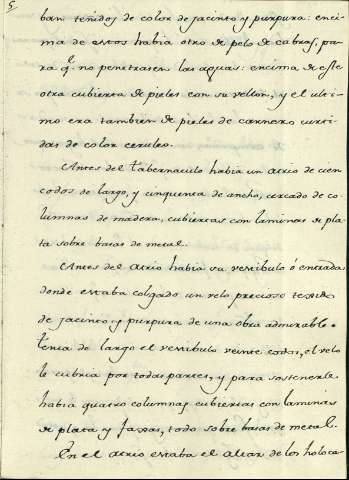 5
ban teñidos de color de jacinto y purpura: enci-
ma de estos habia otro de pelo de cabras, pa-
ra q.e no penetrasen las aguas: encima de este
otra cubierta de pieles con su vellon, y el ulti-
mo era tambien de pieles de carnero curti-
das de color ceruleo.
Antes del tabernaculo habia un atrio de cien
codos de largo, y cinquenta de ancho, cercado de co-
lumnas de madera, cubiertas con laminas de pla-
ta sobre basas de metal.
Antes del atrio habia su vestibulo ó entrada
donde estaba colgado un velo precioso texido
de jacinto y purpura de una obra admirable.
tenia de largo el vestibulo veinte codos, el velo
le cubria por todas partes, y para sostenerle
habia quatro columnas cubiertas con laminas
de plata y faxas, todo sobre basas de metal.
En el atrio estaba el altar de los holoca-